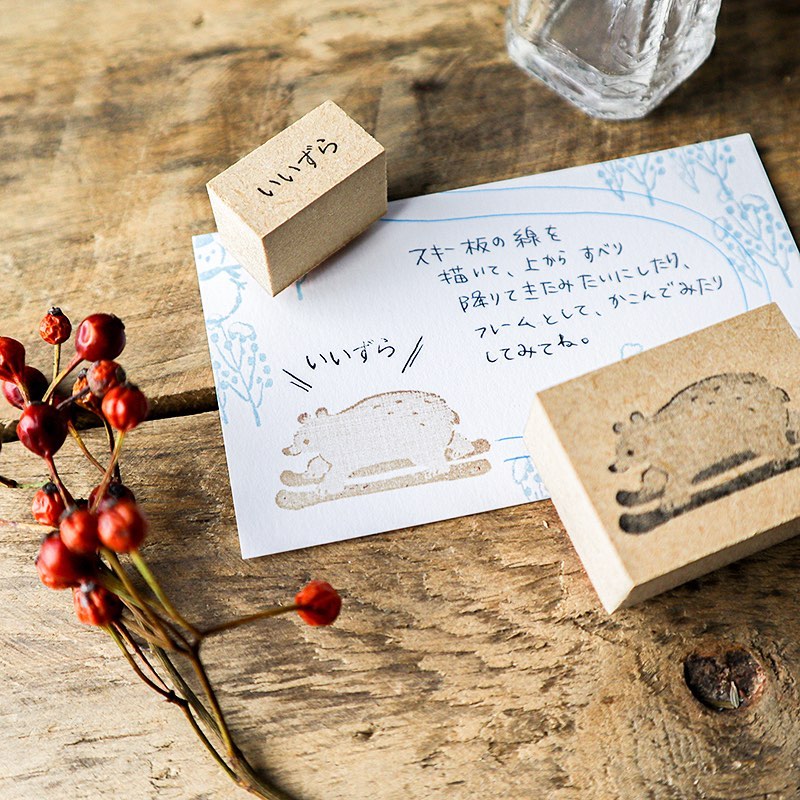 いいずら
スキー板の線を
描いて、上から すべり
降りてきたみたいにしたり、
フレームとして、かこんでみたり
してみてね。
いいずら